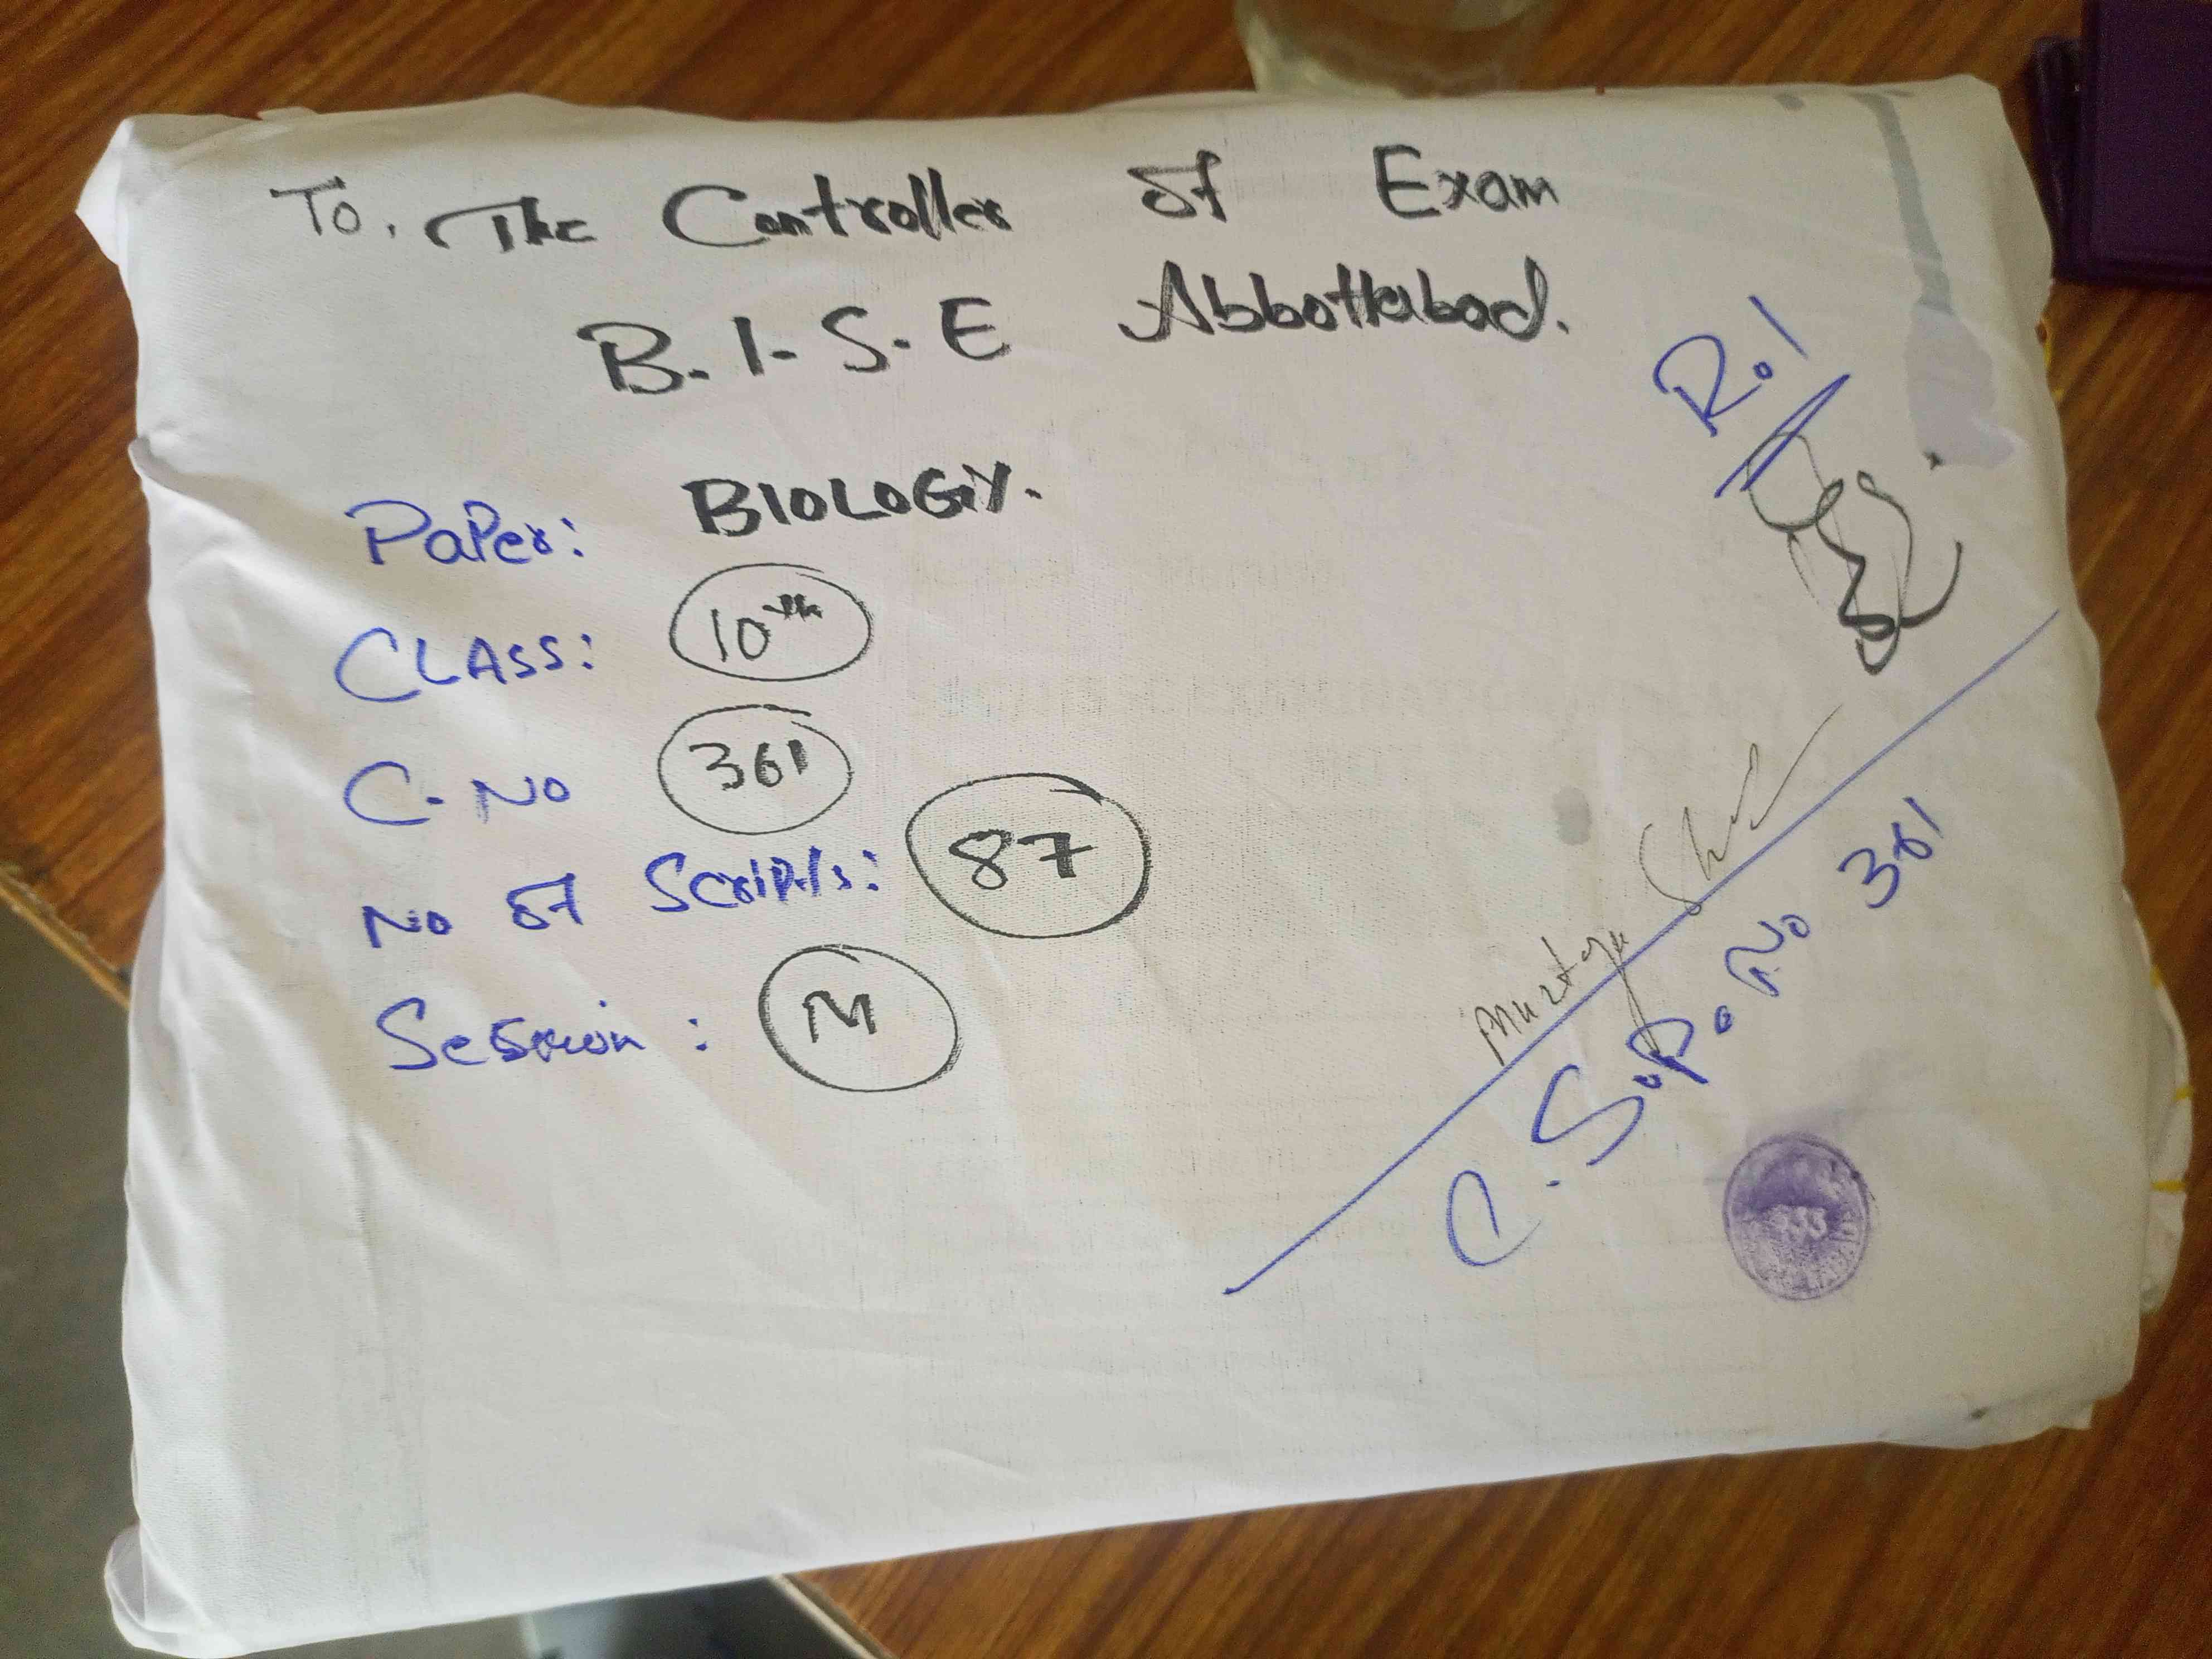 To, The Controller of Exam
B.I.S.E Abbottabad.
R.I
Paper: BIOLOGY.
CLASS: 10th
C.No 361
No of Scripts: 87
Session: M
C.S.P.No 361
333